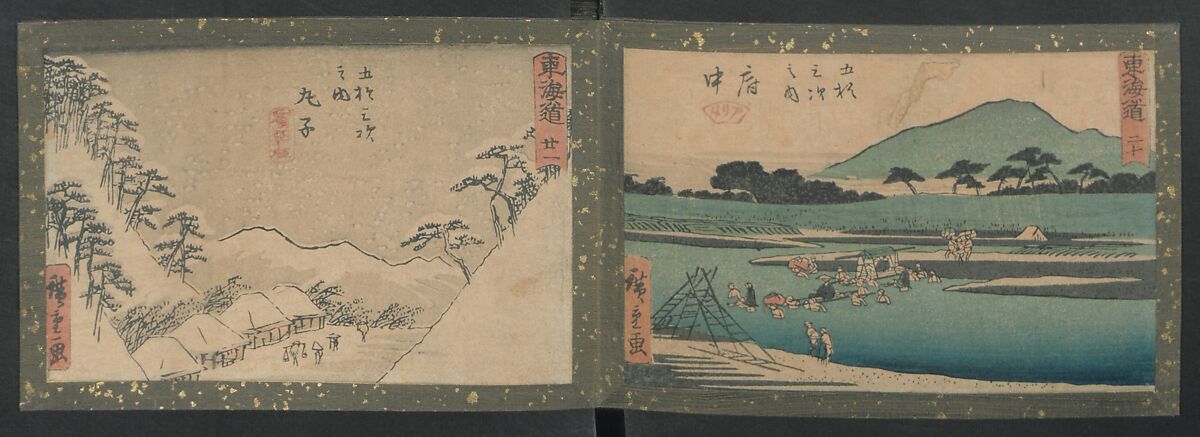 東海道
二十
五拾
三次
之内
府
中
廣重画
東海道
廿一
五拾三次
之内
丸子
廣重画